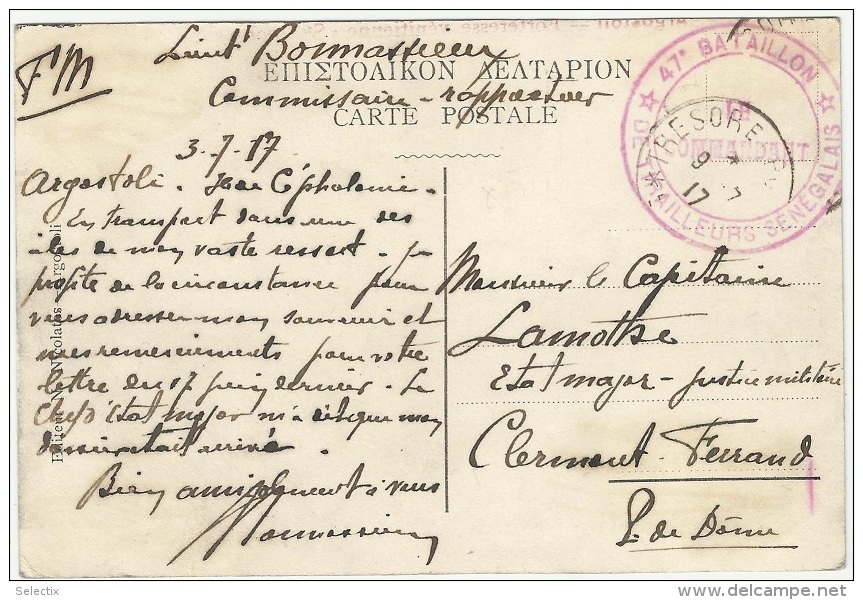 Argostoli — Forteresse vénitienne
FM
Lieut Bonnassieux
ΕΠΙΣΤΟΛΙΚΟΝ ΔΕΛΤΑΡΙΟΝ
Commissaire-rapporteur
CARTE POSTALE
47e BATAILLON
DE TIRAILLEURS SÉNÉGALAIS
LE
COMMANDANT
TRESOR E
9 7
17
3-7-17
Argostoli. Céphalonie.
En transport dans une des
îles de mon vaste ressort. Je
profite de la circonstance pour
vous adresser mon souvenir et
mes remerciements pour votre
lettre du 17 juin dernier. Le
Chef d'Etat major m'a dit que mon
dossier était arrivé.
Bien amicalement à vous
Bonnassieux
Editeur Nicolatos Argostoli
Monsieur le Capitaine
Lamothe
Etat major - justice militaire
Clermont-Ferrand
P. de Dôme
Selectix
delcampe.net